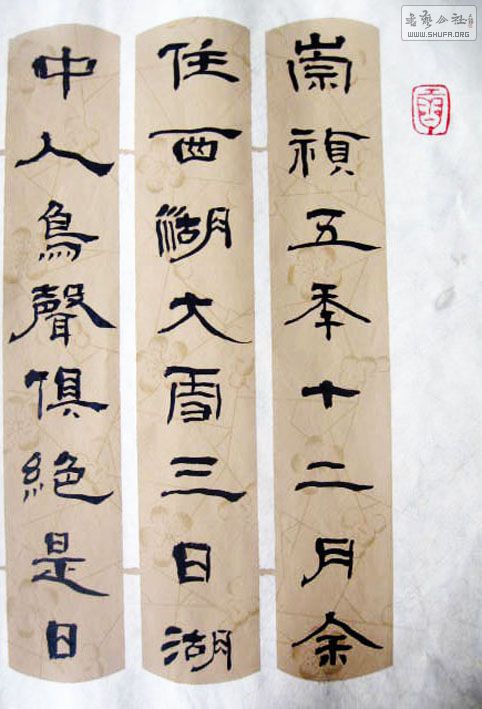 崇禎五年十二月余
住西湖大雪三日湖
中人鳥聲俱絕是日
書藝公社
WWW.SHUFA.ORG